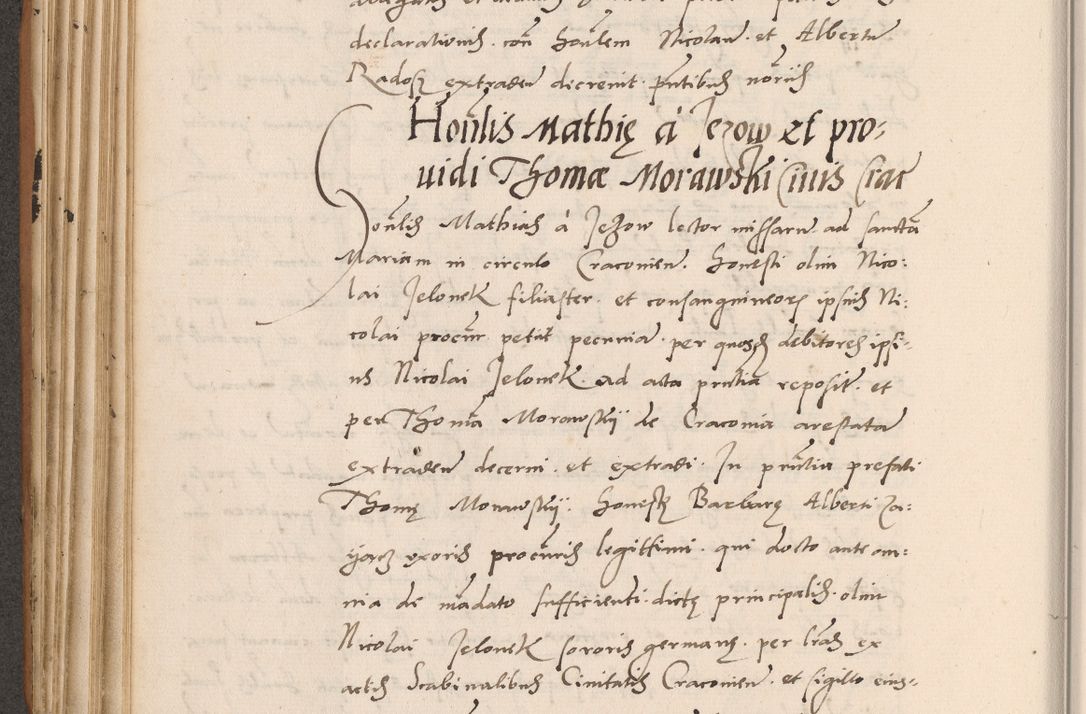 declarationis. con̄ hon̄lem Nicolaū et Albertū
Radosz extradeñ decrevit. p̄ntibus notriis
Hon̄lis Mathię à Jezow et pro-
uidi Thomæ Morawski Ciuis Crac
Hon̄lis Mathias à Jezow lector missarū ad sanctā
Mariam in circulo Cracovien̄. honesti olim Nico:
lai Jelonek filiaster. et consanguineorū ipsius Ni:
colai procūr. petiit pecunia per quosdā debitores ipsi-
us Nicolai Jelonek ad acta prn̄tia reposit. et
per Thomā Morawskij de Cracovia arestata
extradeñ decerni. et extradi. In prn̄tia prefati
Thomę Morawskij. honestę Barbarę Alberti Za:
ijacz uxoris procūris legittimi. qui docto ante om:
nia de mādato sufficienti dictę principalis. olim
Nicolai Jelonek sororis germanę. per lr̄as ex
actis Scabinalibus Civitatis Cracovien̄. et sigillo eius-